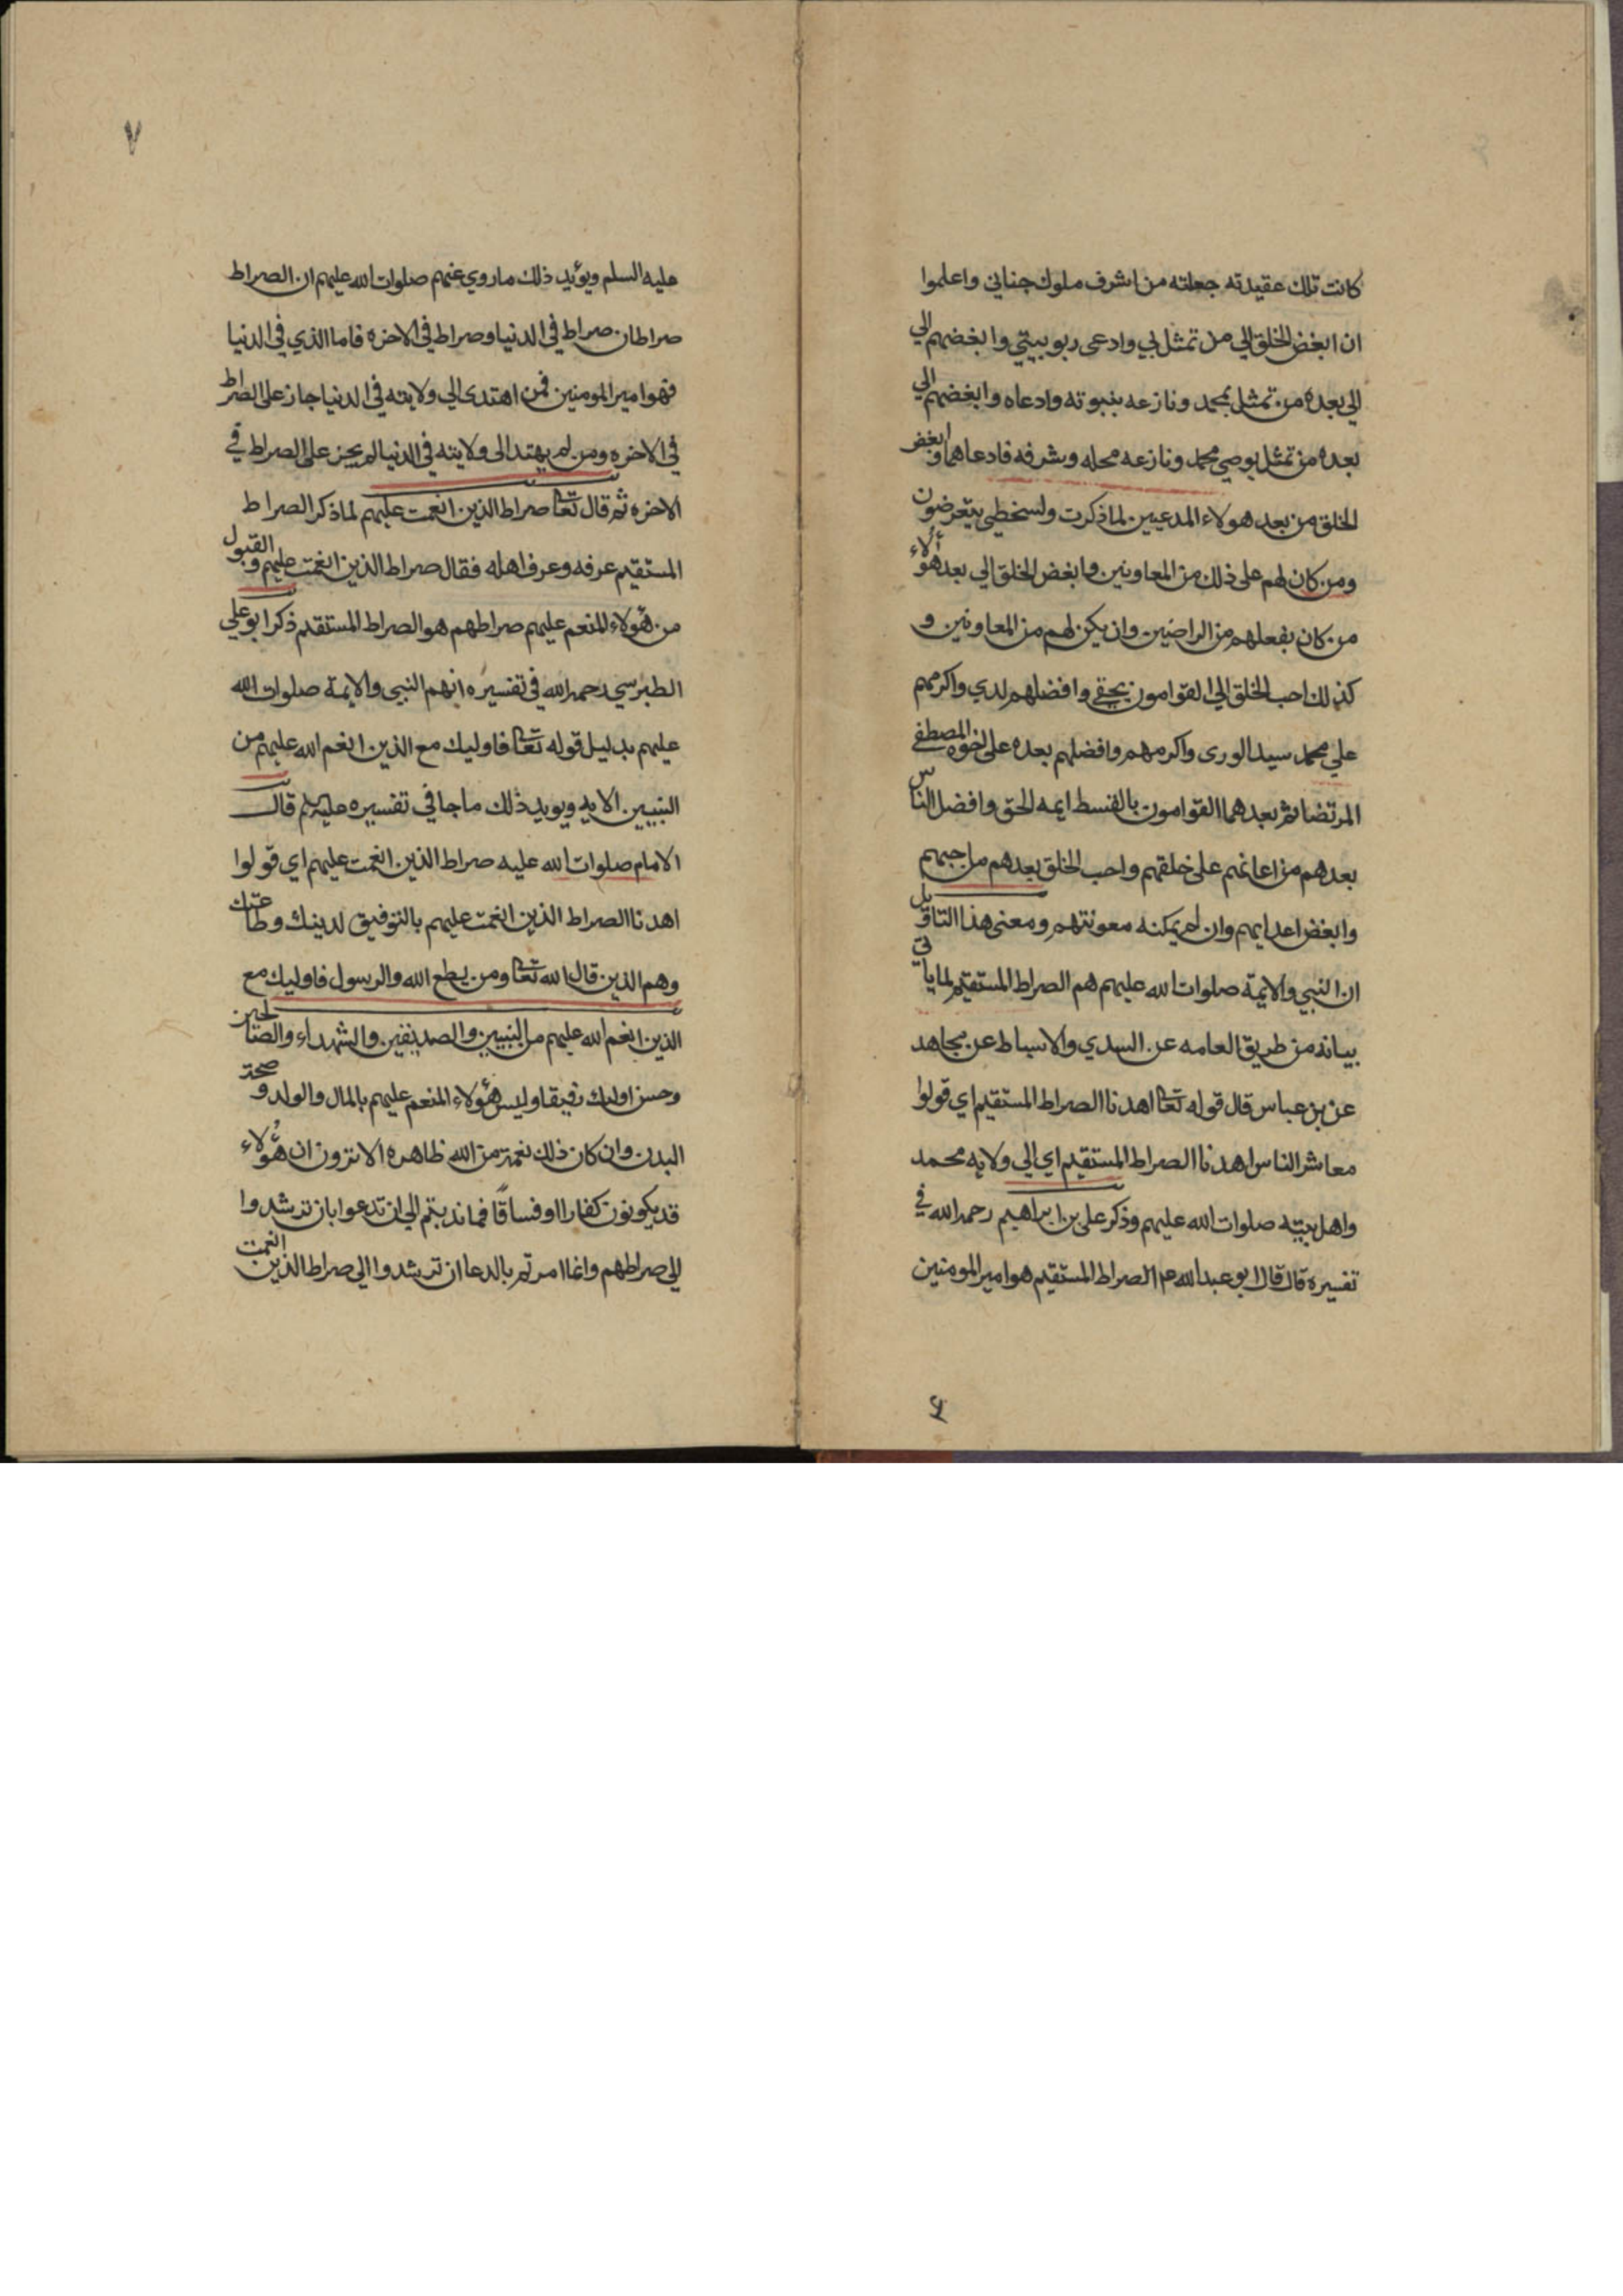 كانت تلك عقيدته جعلته من اشرف ملوك جناني واعلموا
ان ابغض الخلق الي من تمثل بي وادعى ربوبيتي وابغضهم الي
الي بعده من تمثل بمحمد ونازعه بنبوته وادعاه وابغضهم الي
بعده من تمثل بوصي محمد ونازعه محله وشرفه فادعاهما وابغض
الخلق من بعد هولاء المدعيين لما ذكرت ولسخطي يتعرضون
ومن كان لهم على ذلك من المعاونين وابغض الخلق الي بعد هؤلاء
من كان بفعلهم من الراضين وان يكن لهم من المعاونين و
كذلك احب الخلق الي القوامون بحقي وافضلهم لدي واكرمهم
علي محمد سيد الورى واكرمهم وافضلهم بعده علي اخوه المصطفى
المرتضا ثم بعدهما القوامون بالقسط ايمه الحق وافضل الناس
بعدهم من اعانهم على خلقهم واحب الخلق بعدهم من احبهم
وابغض اعدايهم وان لم يمكنه معونتهم ومعنى هذا التاويل
ان النبي والايمة صلوات الله عليهم هم الصراط المستقيم لما ياتي
بيانه من طريق العامه عن السدي والاسباط عن مجاهد
عن بن عباس قال قوله تعا اهدنا الصراط المستقيم اي قولوا
معاشر الناس اهدنا الصراط المستقيم اي الي ولايه محمد
واهل بيته صلوات الله عليهم وذكر علي بن ابراهيم رحمه الله في
تفسيره قال قال ابو عبد الله عم الصراط المستقيم هو امير المومنين
۶
۷
عليه السلم ويؤيد ذلك ما روي عنهم صلوات الله عليهم ان الصراط
صراطان صراط في الدنيا وصراط في الاخره فاما الذي في الدنيا
فهو امير المومنين فمن اهتدى الي ولايته في الدنيا جاز على الصراط
في الاخره ومن لم يهتد الى ولايته في الدنيا لم يجز على الصراط في
الاخره ثم قال تعا صراط الذين انعمت عليهم لما ذكر الصراط
المستقيم عرفه وعرف اهله فقال صراط الذين انعمت عليهم والقبول
من هؤلاء المنعم عليهم صراطهم هو الصراط المستقيم ذكر ابو علي
الطبرسي رحمه الله في تفسيره انهم النبي والايمة صلوات الله
عليهم بدليل قوله تعا فاوليك مع الذين انعم الله عليهم من
النبيين الايه ويويد ذلك ما جا في تفسيره عليه السلم قال
الامام صلوات الله عليه صراط الذين انعمت عليهم اي قولوا
اهدنا الصراط الذين انعمت عليهم بالتوفيق لدينك وطاعتك
وهم الذين قال الله تعا ومن يطع الله والرسول فاوليك مع
الذين انعم الله عليهم من النبيين والصديقين والشهداء والصالحين
وحسن اوليك رفيقا وليس هؤلاء المنعم عليهم بالمال والولد وصحة
البدن وان كان ذلك نعمة من الله ظاهره الا ترون ان هؤلاء
قد يكونون كفارا او فساقا فما ندبتم الي ان تدعوا بان ترشدوا
الي صراطهم وانما امرتم بالدعا ان ترشدوا الي صراط الذين انعمت